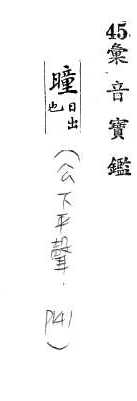 45彙音寶鑑
曈日出也
(公下平聲. P141)